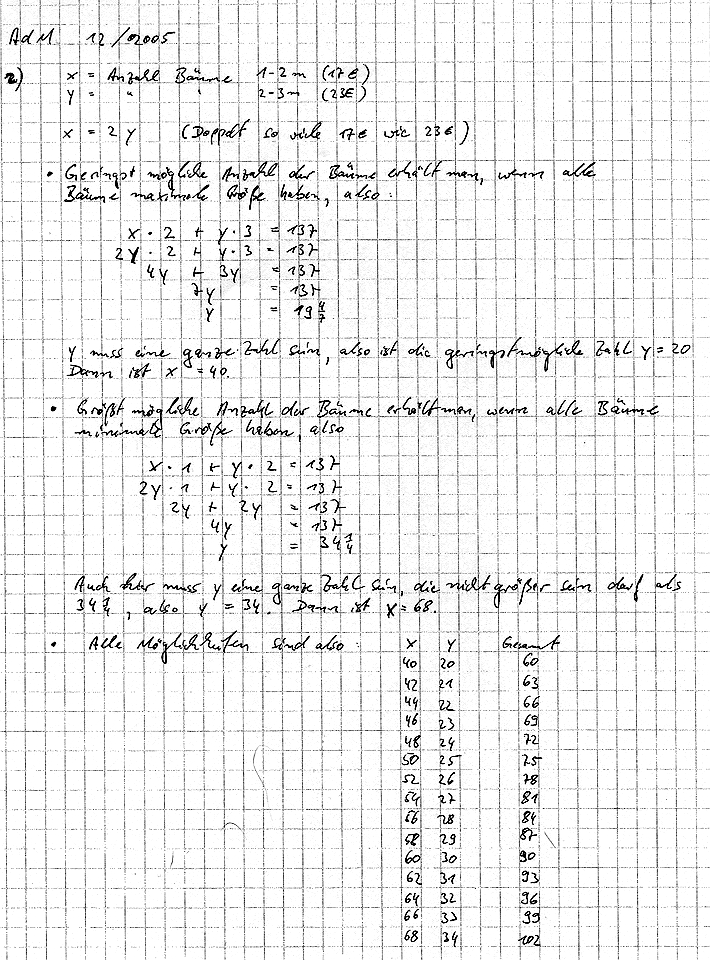 AdM 12/2005
2) x = Anzahl Bäume 1-2m (17€)
y = " " 2-3m (23€)
x = 2y (Doppelt so viele 17€ wie 23€)
• Geringst mögliche Anzahl der Bäume erhält man, wenn alle
Bäume maximale Größe haben, also:
x · 2 + y · 3 = 137
2y · 2 + y · 3 = 137
4y + 3y = 137
7y = 137
y = 19 4/7
y muss eine ganze Zahl sein, also ist die geringstmögliche Zahl y = 20
Dann ist x = 40.
• Größt mögliche Anzahl der Bäume erhält man, wenn alle Bäume
minimale Größe haben, also
x · 1 + y · 2 = 137
2y · 1 + y · 2 = 137
2y + 2y = 137
4y = 137
y = 34 1/4
Auch hier muss y eine ganze Zahl sein, die nicht größer sein darf als
34 1/4, also y = 34. Dann ist x = 68.
• Alle Möglichkeiten sind also: x y Gesamt
40 20 60
42 21 63
44 22 66
46 23 69
48 24 72
50 25 75
52 26 78
54 27 81
56 28 84
58 29 87
60 30 90
62 31 93
64 32 96
66 33 99
68 34 102